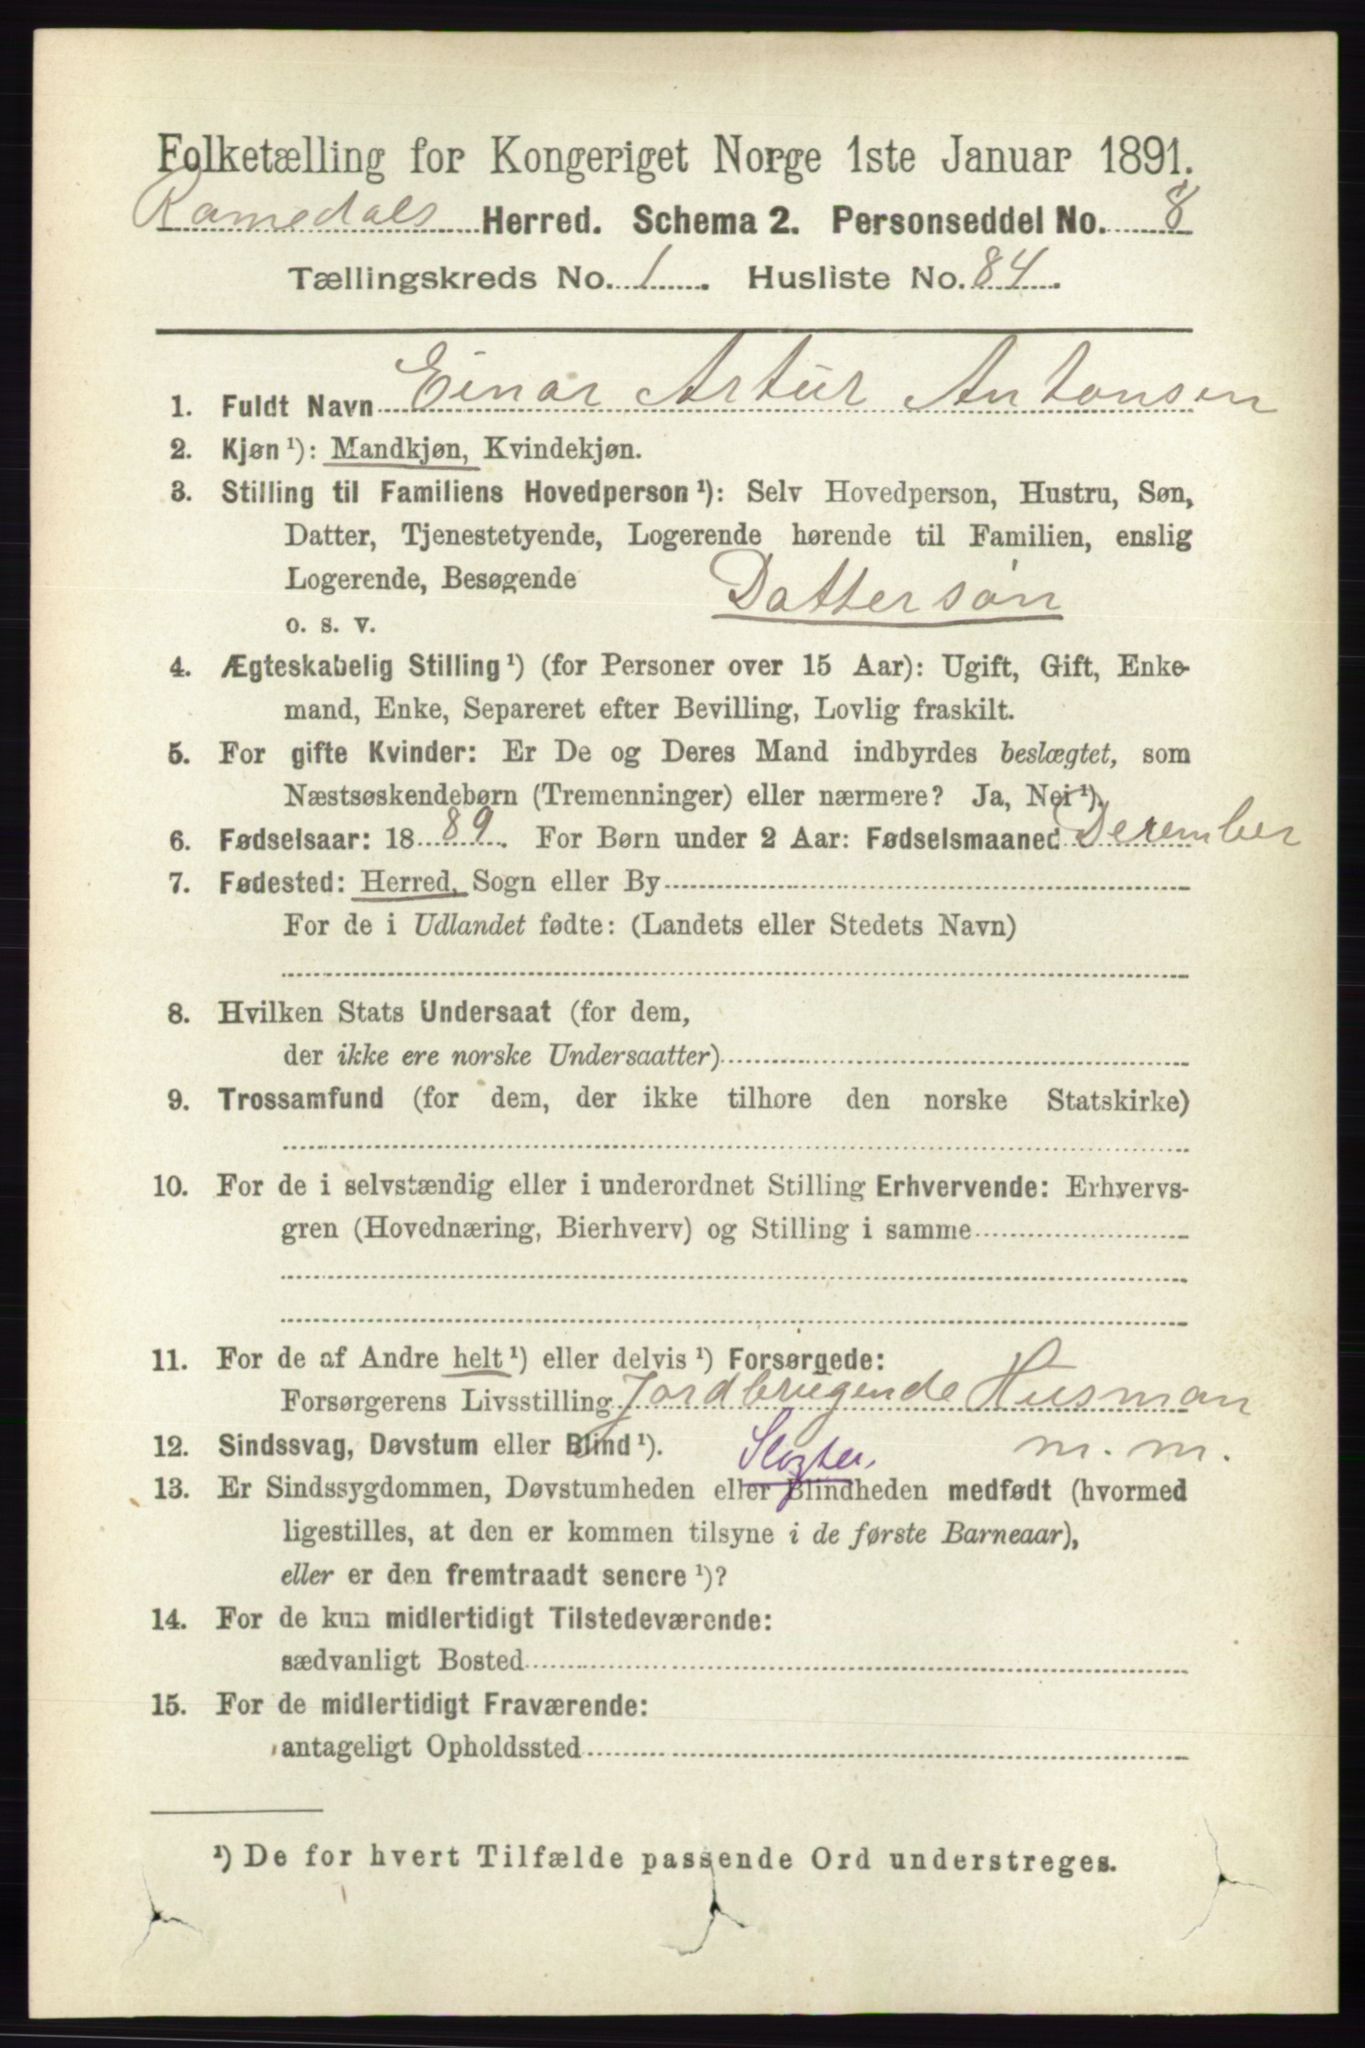 Folketælling for Kongeriget Norge 1ste Januar 1891.
Romedals Herred. Schema 2. Personseddel No. 8
Tællingskreds No. 1. Husliste No. 84.
1. Fuldt Navn Einar Artur Antonsen
2. Kjøn ¹): Mandkjøn, Kvindekjøn.
3. Stilling til Familiens Hovedperson ¹): Selv Hovedperson, Hustru, Søn,
Datter, Tjenestetyende, Logerende hørende til Familien, enslig
Logerende, Besøgende
Dattersøn
o. s. v.
4. Ægteskabelig Stilling ¹) (for Personer over 15 Aar): Ugift, Gift, Enke-
mand, Enke, Separeret efter Bevilling, Lovlig fraskilt.
5. For gifte Kvinder: Er De og Deres Mand indbyrdes beslægtet, som
Næstsøskendebørn (Tremenninger) eller nærmere? Ja, Nei ¹).
6. Fødselsaar: 1889. For Børn under 2 Aar: Fødselsmaaned December
7. Fødested: Herred, Sogn eller By
For de i Udlandet fødte: (Landets eller Stedets Navn)
8. Hvilken Stats Undersaat (for dem,
der ikke ere norske Undersaatter)
9. Trossamfund (for dem, der ikke tilhøre den norske Statskirke)
10. For de i selvstændig eller i underordnet Stilling Erhvervende: Erhvervs-
gren (Hovednæring, Bierhverv) og Stilling i samme
11. For de af Andre helt ¹) eller delvis ¹) Forsørgede:
Forsørgerens Livsstilling Jordbrugende Husman
12. Sindssvag, Døvstum eller Blind ¹). m. m.
13. Er Sindssygdommen, Døvstumheden eller Blindheden medfødt (hvormed
ligestilles, at den er kommen tilsyne i de første Barneaar),
eller er den fremtraadt senere ¹)?
14. For de kun midlertidigt Tilstedeværende:
sædvanligt Bosted
15. For de midlertidigt Fraværende:
antageligt Opholdssted
¹) De for hvert Tilfælde passende Ord understreges.